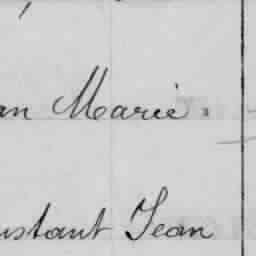 an Marie
ustant Jean